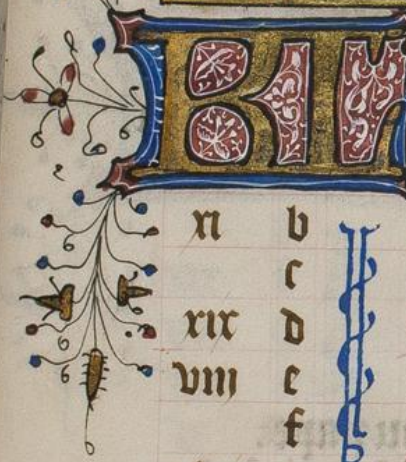 BI
xi b
c
xix d
viii e
f